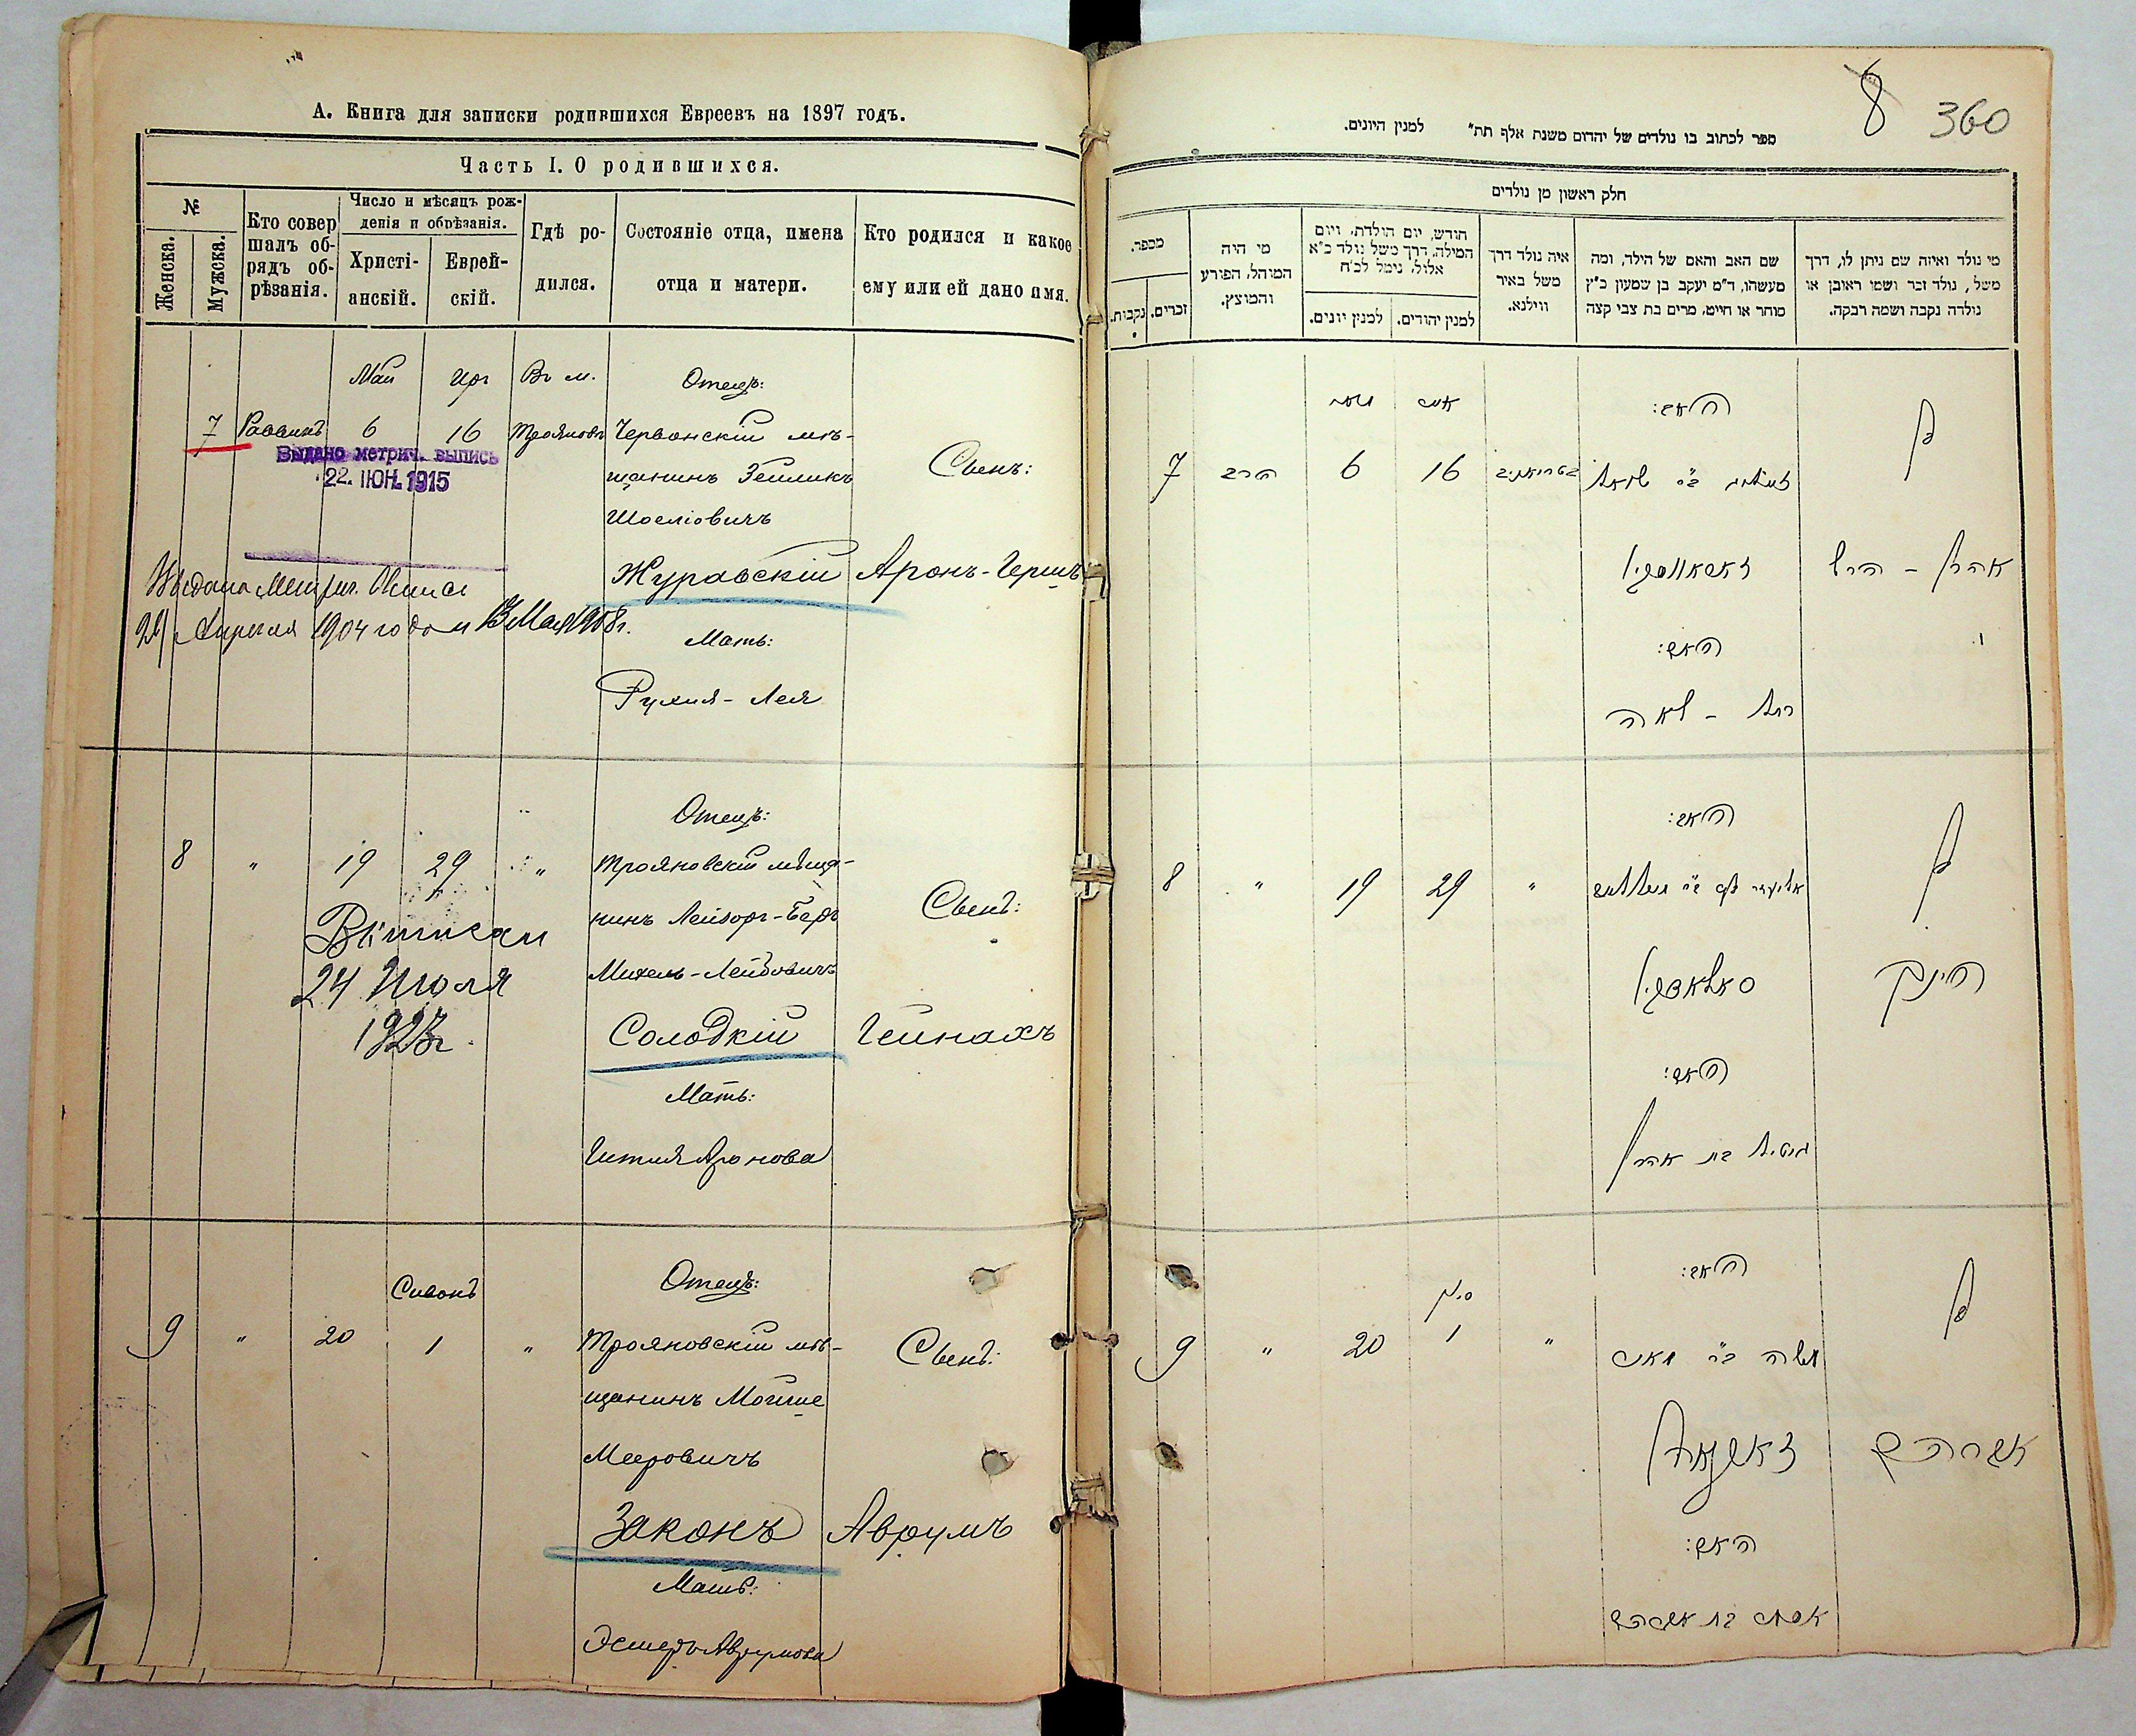 А. Книга для записки родившихся Евреевъ на 1897 годъ.
Часть I. О родившихся.
№
Женска.
Мужска.
Кто совер
шалъ об-
рядъ об-
рѣзанія.
Число и мѣсяцъ рож-
денія и обрѣзанія.
Христі-
анскій.
Еврей-
скій.
Гдѣ ро-
дился.
Состояніе отца, имена
отца и матери.
Кто родился и какое
ему или ей дано имя.
Май
Иръ
Въ м.
Отецъ:
7
Раввинъ
6
16
Трояновъ
Червонскій мѣ-
щанинъ Зейликъ
Сынъ:
Выдано метрич. выпись
22. ІЮН. 1915
Шоеліовичъ
Журавскій
Аронъ-Гершъ
Выдана Метрич. Выпись
Апреля 1904 года и 13 Мая 1908 г.
Мать:
Рухля-Лея
Отецъ:
8
"
19
29
"
Трояновскій мѣща-
нинъ Лейзоръ-Беръ
Сынъ:
Выписан
24 Июля
1923г.
Михель-Лейбовичъ
Солодкій
Гейнахъ
Мать:
Гитля Аронова
Отецъ:
Сивонъ
9
"
20
1
"
Трояновскій мѣ-
щанинъ Мойше
Сынъ:
Мееровичъ
Законъ
Аврумъ
Мать:
Эстеръ Аврумова
8
360
ספר לכתוב בו נולדים של יהדום משנת אלף תת״ למנין היונים.
חלק ראשון מן נולדים
מי נולד ואיזה שם ניתן לו, דרך
משל, נולד זכר ושמו ראובן או
נולדה נקבה ושמה רבקה.
שם האב והאם של הילד, ומה
מעשהו, ד״מ יעקב בן שמעון כ״ץ
סוחר או חייט, מרים בת צבי קצה
איה נולד דרך
משל באיר
ווילנא.
חודש, יום הולדת, ויום
המילה, דרך משל נולד כ״א
אלול, נימל לכ״ח
למנין יהודים.
למנין יונים.
מי היה
המוהל, הפורע
והמוצץ.
מספר.
זכרים.
נקבות.
האב:
בן
7
הרב
6
16
אהרן - הרש
האם:
רחל - לאה
האב:
בן
8
"
19
29
"
היינך
האם:
גיטל בת אהרן
האב:
בן
סיון
9
"
20
1
"
משה ב״ר מאיר
זאקאן
אברהם
האם:
אסתר בת אברהם